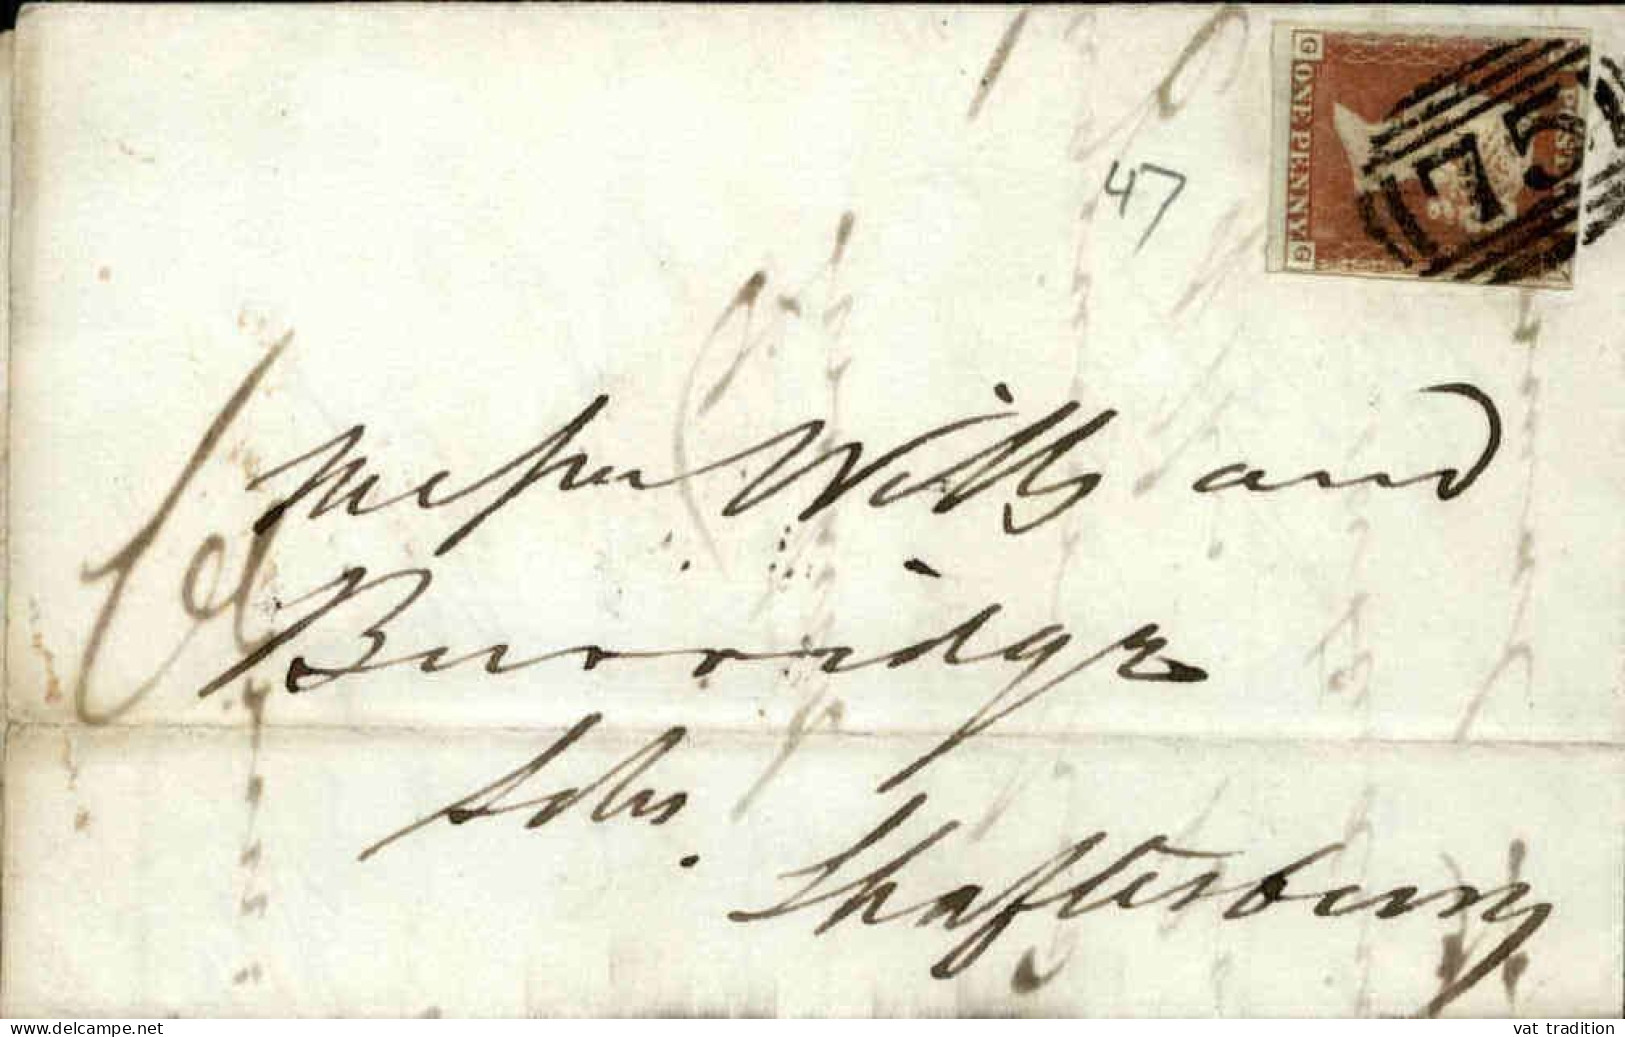 POSTAGE
ONE PENNY
G G
75
47
Messrs Wills and
Burridge
Solrs.
Shaftesbury
www.delcampe.net
vat tradition